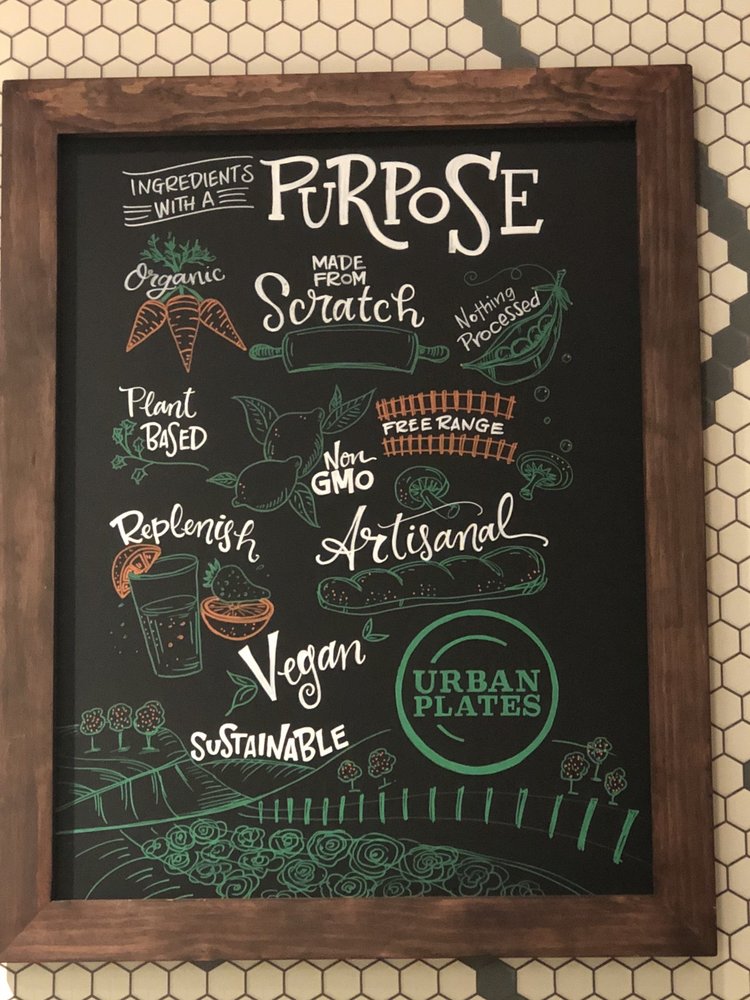 INGREDIENTS
WITH A
PURPOSE
Organic
MADE
FROM
Scratch
Nothing
Processed
Plant
BASED
FREE RANGE
Non
GMO
Replenish
Artisanal
Vegan
URBAN
PLATES
SUSTAINABLE